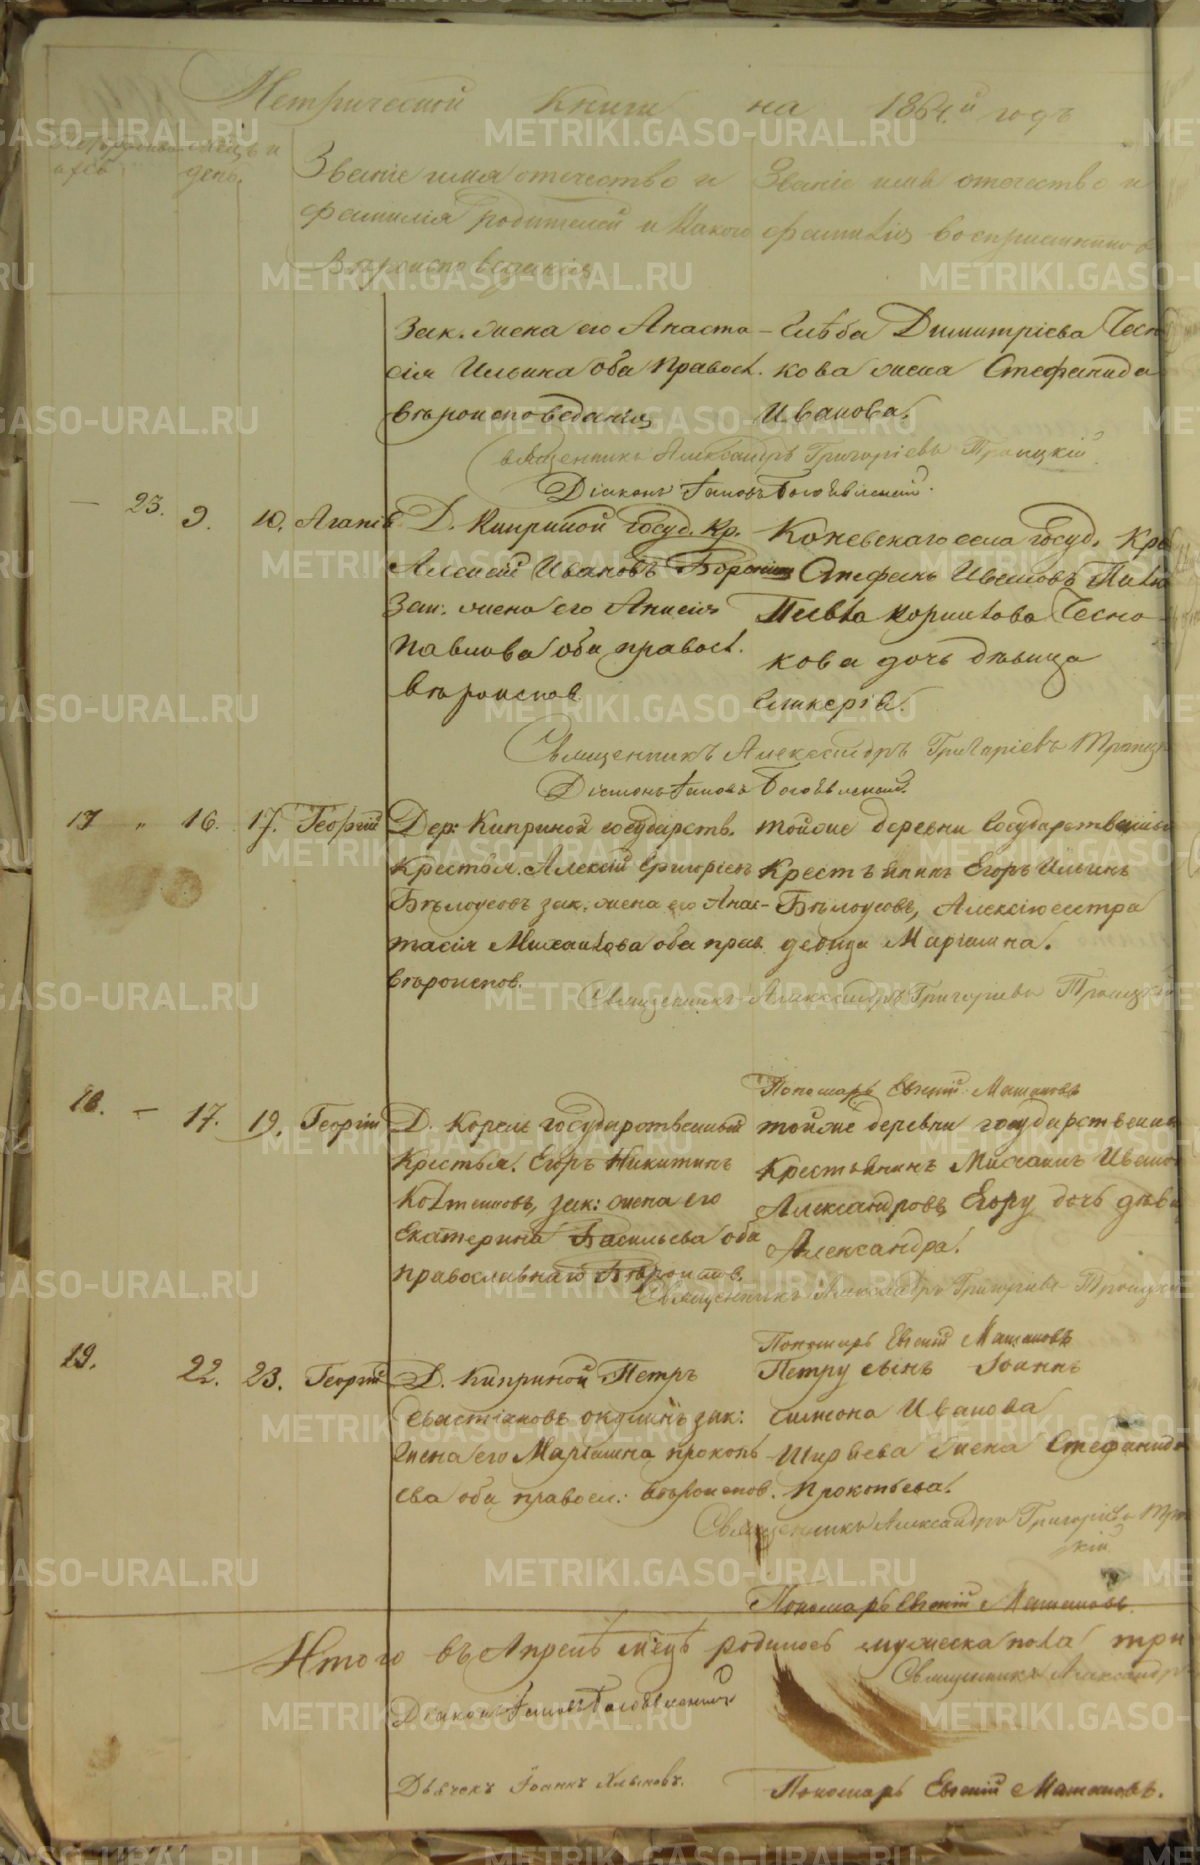 Метрической книги на 1864й годъ
мѣсяцъ и
день.
Званіе имя отечество и
фамилія родителей и какого
вѣроисповеданія
Званіе имя отечество и
фамилія восприемников
Зак. жена его Анаста-
сія Ильина оба правосл.
вѣроисповеданія
Глѣба Димитріева Чесн
кова жена Стефанида
Иванова.
священникъ Александръ Григоріевъ Троицкій
Діаконъ Іаковъ Богоявленскій.
— 23. 9. 10. Агапія
Д. Киприной госуд. Кр.
Алексій Ивановъ
Зак. жена его Анисія
Павлова оба правосл.
вѣроиспов.
Коневскаго села госуд. Кре
Стефанъ Ивановъ
Чесно-
кова дочь дѣвица
Гликерія.
Священникъ Александръ Григоріевъ Троицк
Діаконъ Іаковъ Богоявленскій.
17 " 16. 17. Георгій
Дер: Киприной государств.
Крестья. Алексій Григоріевъ
Бѣлоусовъ зак. жена его Анас-
тасія Михайлова оба прав.
вѣроиспов.
тойже деревни государственный
Крестьянинъ Егоръ Ильинъ
Бѣлоусовъ, Алексію сестра
девица Маріамна.
Священникъ Александръ Григоріевъ Троицкій
Пономарь Евгеній Машановъ
18. — 17. 19. Георгій
Д. Корель государственный
Крестья. Егоръ Никитинъ
зак: жена его
Екатерина Васильева оба
православнаго вѣроиспов.
тойже деревни государственны
Крестьянинъ Михаилъ Ивано
Александровъ, Егору дочь дѣви
Александра.
Священникъ Александръ Григоріевъ Троицкі
Пономарь Евгеній Машановъ
19. 22. 23. Георгій
Д. Киприной Петръ
Севастіановъ зак:
жена его Маріамна Прокопь
ева оба правосл: вѣроиспов.
Петру сынъ Іоаннъ
Симеона Иванова
Ширяева жена Стефанида
Прокопьева.
Священникъ Александръ Григоріевъ Тро
кій
Пономарь Евгеній Машановъ
Итого въ Апрелѣ мѣцѣ родилось мужеска пола три
Священникъ Александр
Діаконъ Іаковъ Богоявленскій
Дьячекъ Іоаннъ Хлыновъ.
Пономарь Евгеній Машановъ.
METRIKI.GASO-URAL.RU